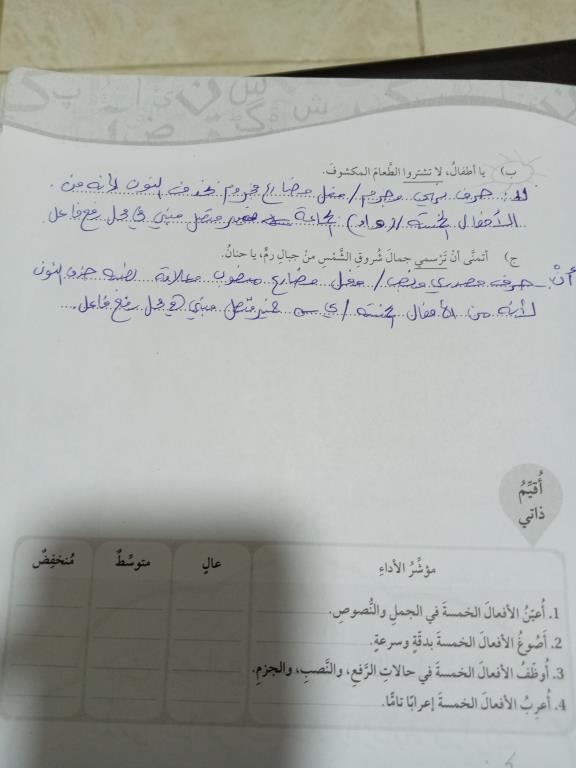 ب) يا أطفالُ، لا تشتروا الطَّعامَ المكشوفَ.
لا: حرف نهي وجزم / فعل مضارع مجزوم بحذف النون لأنه من
الأفعال الخمسة / (واو) الجماعة ضمير متصل مبني في محل رفع فاعل
ج) أتمنَّى أنْ تَرْسمي جمالَ شُروقِ الشَّمْسِ منْ جبالِ رمٍّ، يا حنانُ.
أنْ: حرف مصدري ونصب / فعل مضارع منصوب وعلامة نصبه حذف النون
لأنه من الأفعال الخمسة / ي ضمير متصل مبني في محل رفع فاعل.
أُقيِّمُ
ذاتي
مؤشِّرُ الأداءِ عالٍ متوسِّطٌ مُنخفِضٌ
1. أُعيِّنُ الأفعالَ الخمسةَ في الجملِ والنُّصوصِ.
2. أَصُوغُ الأفعالَ الخمسةَ بدقَّةٍ وسرعةٍ.
3. أُوظِّفُ الأفعالَ الخمسةَ في حالاتِ الرَّفعِ، والنَّصبِ، والجزمِ.
4. أُعرِبُ الأفعالَ الخمسةَ إعرابًا تامًّا.